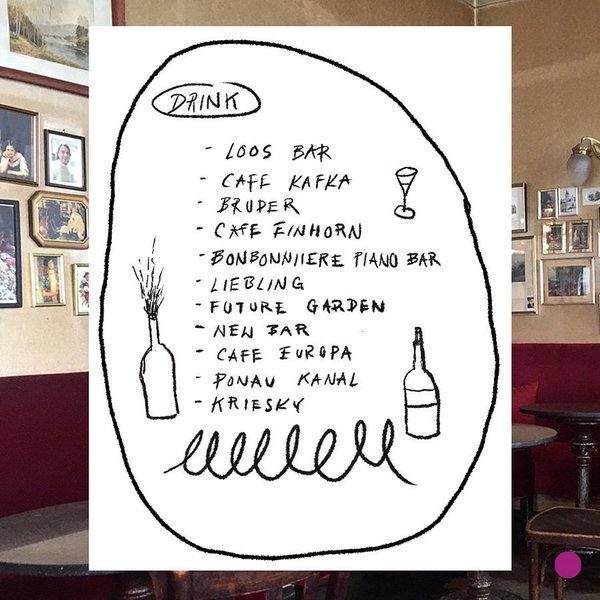 DRINK
- LOOS BAR
- CAFE KAFKA
- BRUDER
- CAFE EINHORN
- BONBONNIIERE PIANO BAR
- LIEBLING
- FUTURE GARDEN
- NEW BAR
- CAFE EUROPA
- DONAU KANAL
- KRIESKY